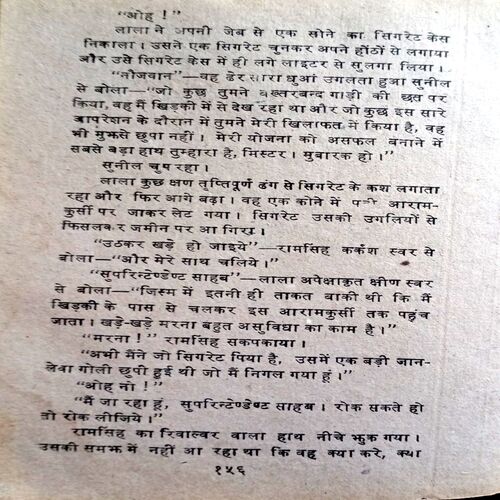 "ओह !"
लाला ने अपनी जेब से एक सोने का सिगरेट केस
निकाला। उसने एक सिगरेट चुनकर अपने होंठों से लगाया
और उसे सिगरेट केस में ही लगे लाइटर से सुलगा लिया।
"नौजवान"—वह ढेर सारा धुआं उगलता हुआ सुनील
से बोला—"जो कुछ तुमने बख्तरबन्द गाड़ी की छत पर
किया, वह मैं खिड़की में से देख रहा था और जो कुछ इस सारे
आपरेशन के दौरान में तुमने मेरी खिलाफत में किया है, वह
भी मुझसे छुपा नहीं। मेरी योजना को असफल बनाने में
सबसे बड़ा हाथ तुम्हारा है, मिस्टर। मुबारक हो।"
सुनील चुप रहा।
लाला कुछ क्षण तृप्तिपूर्ण ढंग से सिगरेट के कश लगाता
रहा और फिर आगे बढ़ा। वह एक कोने में पड़ी आराम-
कुर्सी पर जाकर लेट गया। सिगरेट उसकी उगलियों से
फिसलकर जमीन पर आ गिरा।
"उठकर खड़े हो जाइये"—रामसिंह कर्कश स्वर से
बोला—"और मेरे साथ चलिये।"
"सुपरिन्टेण्डेण्ट साहब"—लाला अपेक्षाकृत क्षीण स्वर
से बोला—"जिस्म में इतनी ही ताकत बाकी थी कि मैं
खिड़की के पास से चलकर इस आरामकुर्सी तक पहुंच
जाता। खड़े-खड़े मरना बहुत असुविधा का काम है।"
"मरना!" रामसिंह सकपकाया।
"अभी मैंने जो सिगरेट पिया है, उसमें एक बड़ी जान-
लेवा गोली छुपी हुई थी जो मैं निगल गया हूं।"
"ओह नो!"
"मैं जा रहा हूं, सुपरिन्टेण्डेण्ट साहब। रोक सकते हो
तो रोक लीजिये।"
रामसिंह का रिवाल्वर वाला हाथ नीचे झुक गया।
उसकी समझ में नहीं आ रहा था कि वह क्या करे, क्या
१५६